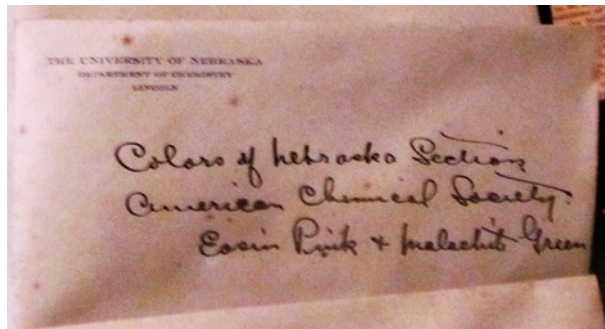 THE UNIVERSITY OF NEBRASKA
DEPARTMENT OF CHEMISTRY
LINCOLN
Colors of Nebraska Section
American Chemical Society.
Eosin Pink + Malachite Green